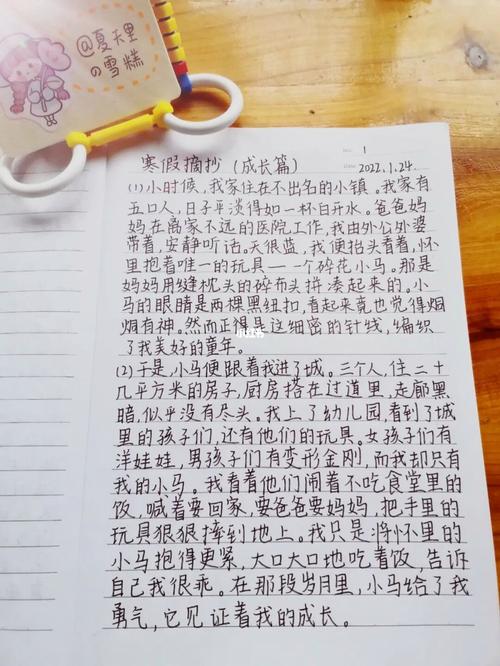 @夏天里
の雪糕
No. 1
寒假摘抄(成长篇)
Date 2022.1.24.
(1)小时候,我家住在不出名的小镇。我家有
五口人,日子平淡得如一杯白开水。爸爸妈
妈在离家不远的医院工作,我由外公外婆
带着,安静听话。天很蓝,我便抬头看着,怀
里抱着唯一的玩具——一个碎花小马。那是
妈妈用缝枕头的碎布头拼凑起来的。小
马的眼睛是两棵黑纽扣,看起来竟也觉得炯
炯有神。然而正得是这细密的针线,编织
了我美好的童年。
(2)于是,小马便跟着我进了城。三个人,住二十
几平方米的房子,厨房搭在过道里,走廊黑
暗,似乎没有尽头。我上了幼儿园,看到了城
里的孩子们,还有他们的玩具。女孩子们有
洋娃娃,男孩子们有变形金刚,而我却只有
我的小马。我看着他们闹着不吃食堂里的
饭,喊着要回家,要爸爸要妈妈,把手里的
玩具狠狠摔到地上。我只是将怀里的
小马抱得更紧,大口大口地吃着饭,告诉
自己我很乖。在那段岁月里,小马给了我
勇气,它见证着我的成长。